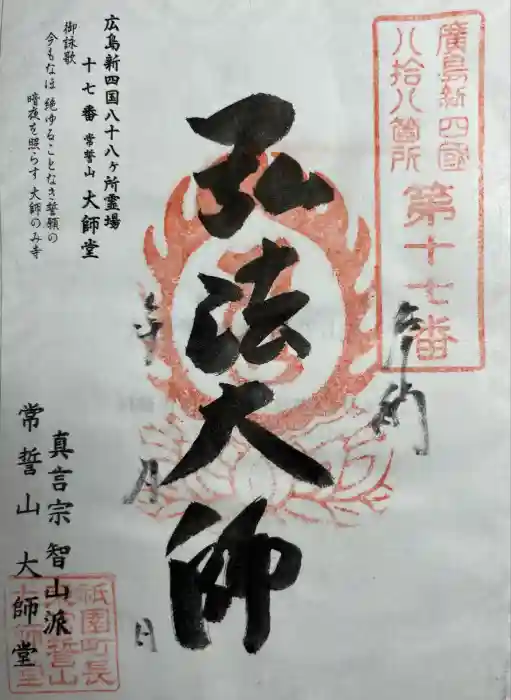 廣島新四國
八拾八箇所 第十七番
奉納
弘法大師
年 月 日
広島新四国八十八ヶ所霊場
十七番 常誓山 大師堂
御詠歌
今もなほ 絶ゆることなき誓願の
暗夜を照らす 大師のみ寺
真言宗 智山派
常誓山 大師堂
祇園町長